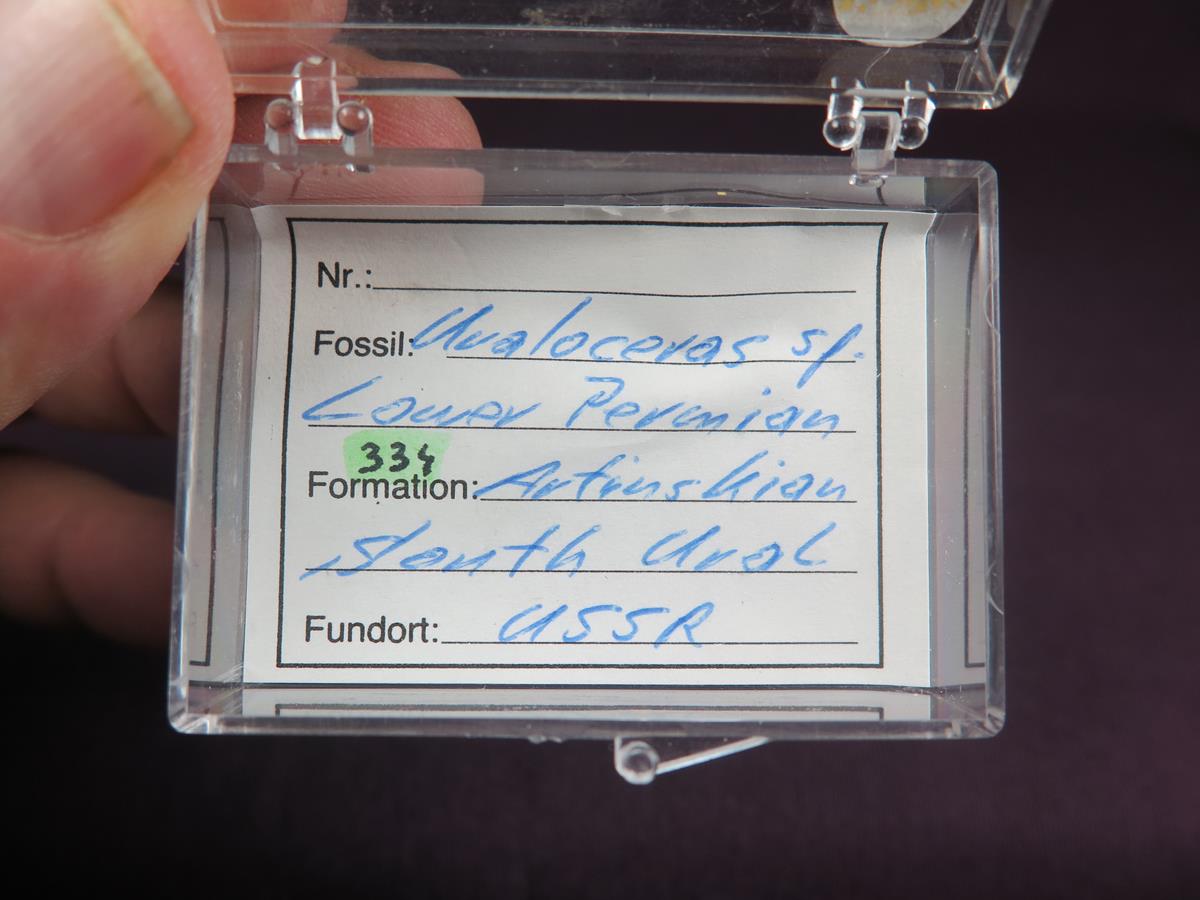 Nr.:
Fossil: Uraloceras sp.
Lower Permian
334
Formation: Artinskian
South Ural
Fundort: USSR